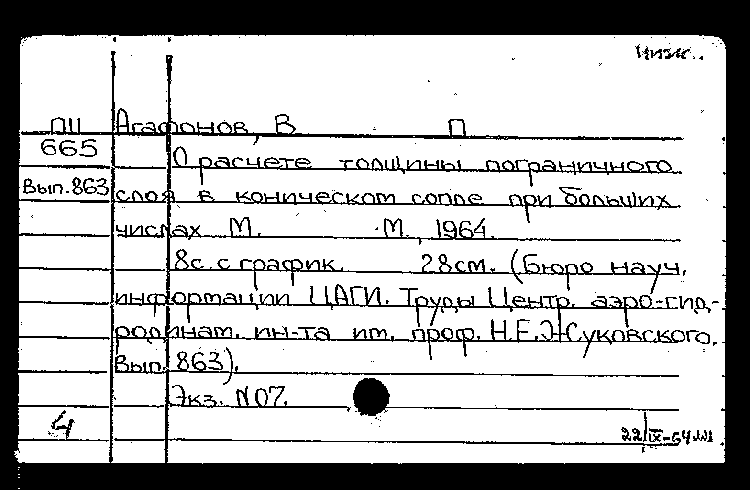 Низк..
ПЦ Агафонов, В П
665
О расчете толщины пограничного
Вып.863 слоя в коническом сопле при больших
числах М. М., 1964.
8с. с график. 28см. (Бюро науч.
информации ЦАГИ. Труды Центр. аэро-гид-
родинам. ин-та им. проф. Н.Е.Жуковского.
Вып. 863).
Экз. N07.
4
22/IX-64